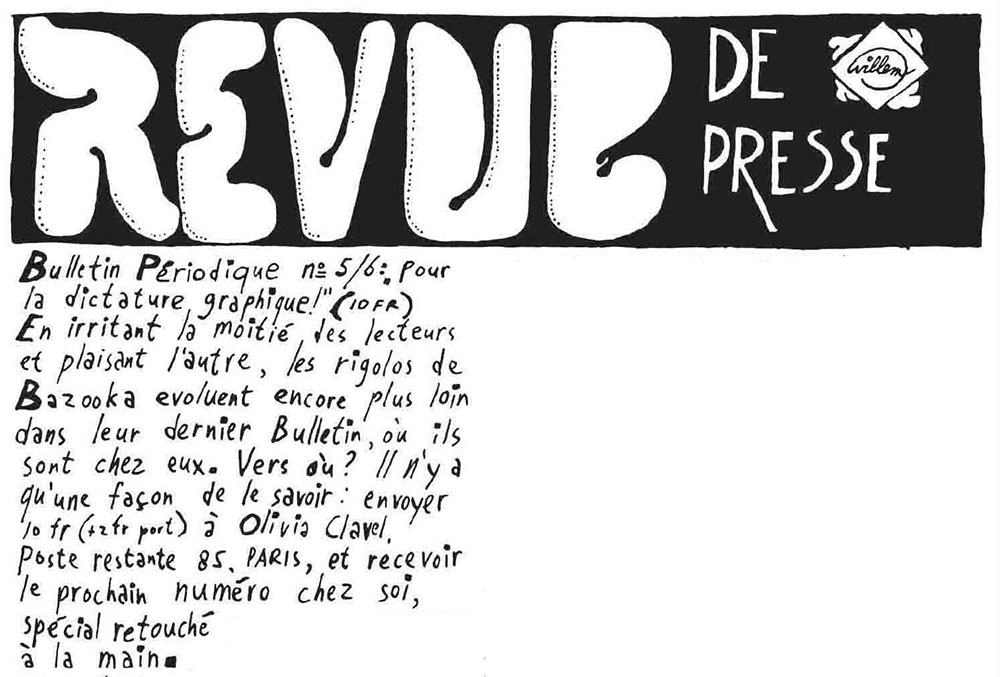 REVUE
DE
PRESSE
Willem
Bulletin Périodique nº 5/6: Pour
la dictature graphique!" (10 FR)
En irritant la moitié des lecteurs
et plaisant l'autre, les rigolos de
Bazooka evoluent encore plus loin
dans leur dernier Bulletin, où ils
sont chez eux. Vers où? Il n'y a
qu'une façon de le savoir: envoyer
10 fr (+2 fr port) à Olivia Clavel,
Poste restante 85, PARIS, et recevoir
le prochain numéro chez soi,
spécial retouché
à la main.